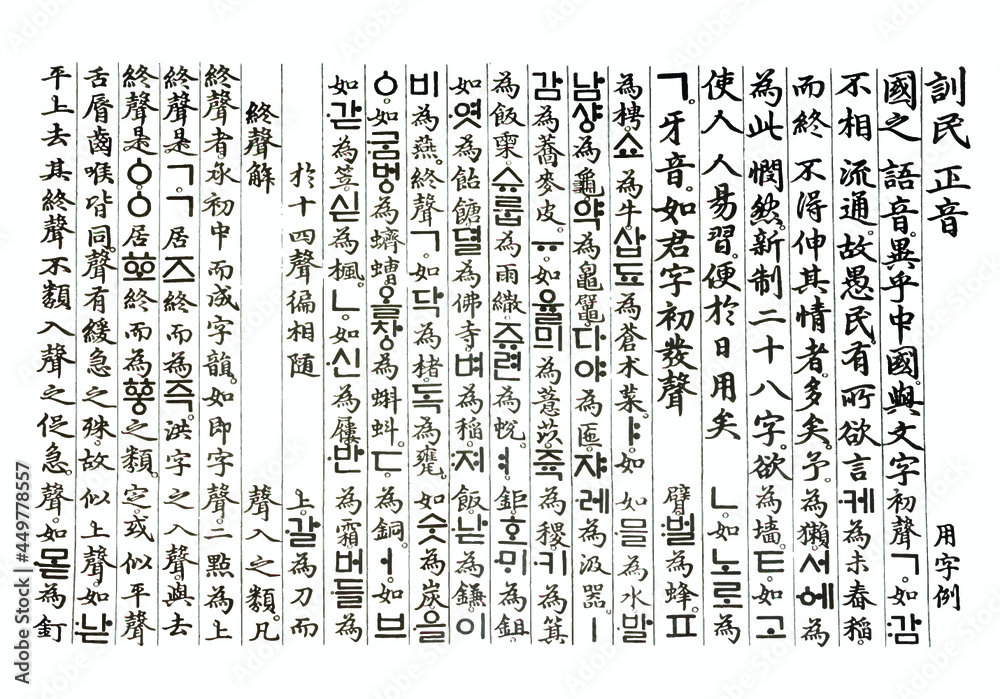 訓民正音 用字例
國之語音。異乎中國。與文字初聲ㄱ。如감
不相流通。故愚民。有所欲言케為未舂稻。
而終不得伸其情者。多矣。予為獺。서에為
為此憫然。新制二十八字。欲為墻。ㅌ。如고
使人人易習。便於日用矣 ㄴ。如노로為
ㄱ。牙音。如君字初發聲 臂。벌為蜂。ㅍ
為梬。쇼為牛。삽됴為蒼朮菜。ㅑ。如 如믈為水。발
남샹為龜。약為龜鼊。다야為匜。쟈 레為汲器。ㅣ
감為蕎麥皮。ㅠ。如율믜為薏苡。쥭 為稷。키為箕
為飯𣖄。슈룹為雨繖。쥬련為帨。ㅕ。 鉅。호ᄆᆡ為鉏
如엿為飴餹。뎔為佛寺。벼為稻。져 飯。낟為鎌。이
비為燕。終聲ㄱ。如닥為楮。독為甕。 如숫為炭。을
ㆁ。如굼벙為蠐螬。올창為蝌蚪。ㄷ。 為銅。ㅓ。如브
如갇為笠。싣為楓。ㄴ。如신為屨。반 為霜。버들為
於十四聲徧相隨 上。갈為刀而
終聲解 聲入之類。凡
終聲者。承初中而成字韻。如即字 聲。二點為上
終聲是ㄱ。ㄱ居즈終而為즉。洪字 之入聲。與去
終聲是ㆁ。ㆁ居ᅘᅩ終而為ᅘᅩᆼ之類。 定。或似平聲
舌脣齒喉皆同。聲有緩急之殊。故 似上聲。如낟
平上去其終聲不類入聲之促急。 聲。如몯為釘
Adobe Stock | #449778557